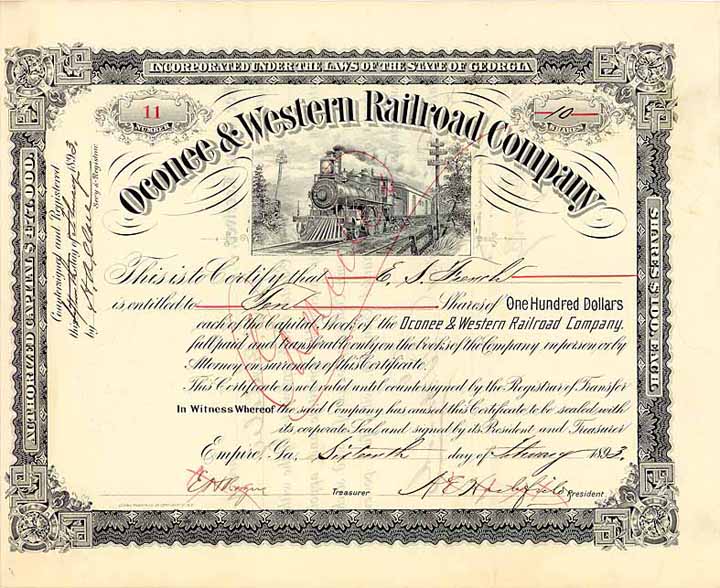 INCORPORATED UNDER THE LAWS OF THE STATE OF GEORGIA
11
NUMBER
10
SHARES
Oconee & Western Railroad Company
AUTHORIZED CAPITAL $476,000.
SHARES $100. EACH
Countersigned and Registered
this day of 1893
by
Secy & Registrar
This is to Certify that E. S. French
is entitled to Ten Shares of One Hundred Dollars
each of the Capital Stock of the Oconee & Western Railroad Company.
full paid and transferable only on the books of the Company in person or by
Attorney on surrender of this Certificate.
This Certificate is not valid until countersigned by the Registrar of Transfer
In Witness Whereof the said Company has caused this Certificate to be sealed with
its corporate Seal and signed by its President and Treasurer
Empire, Ga, Sixteenth day of 1893
Treasurer
President